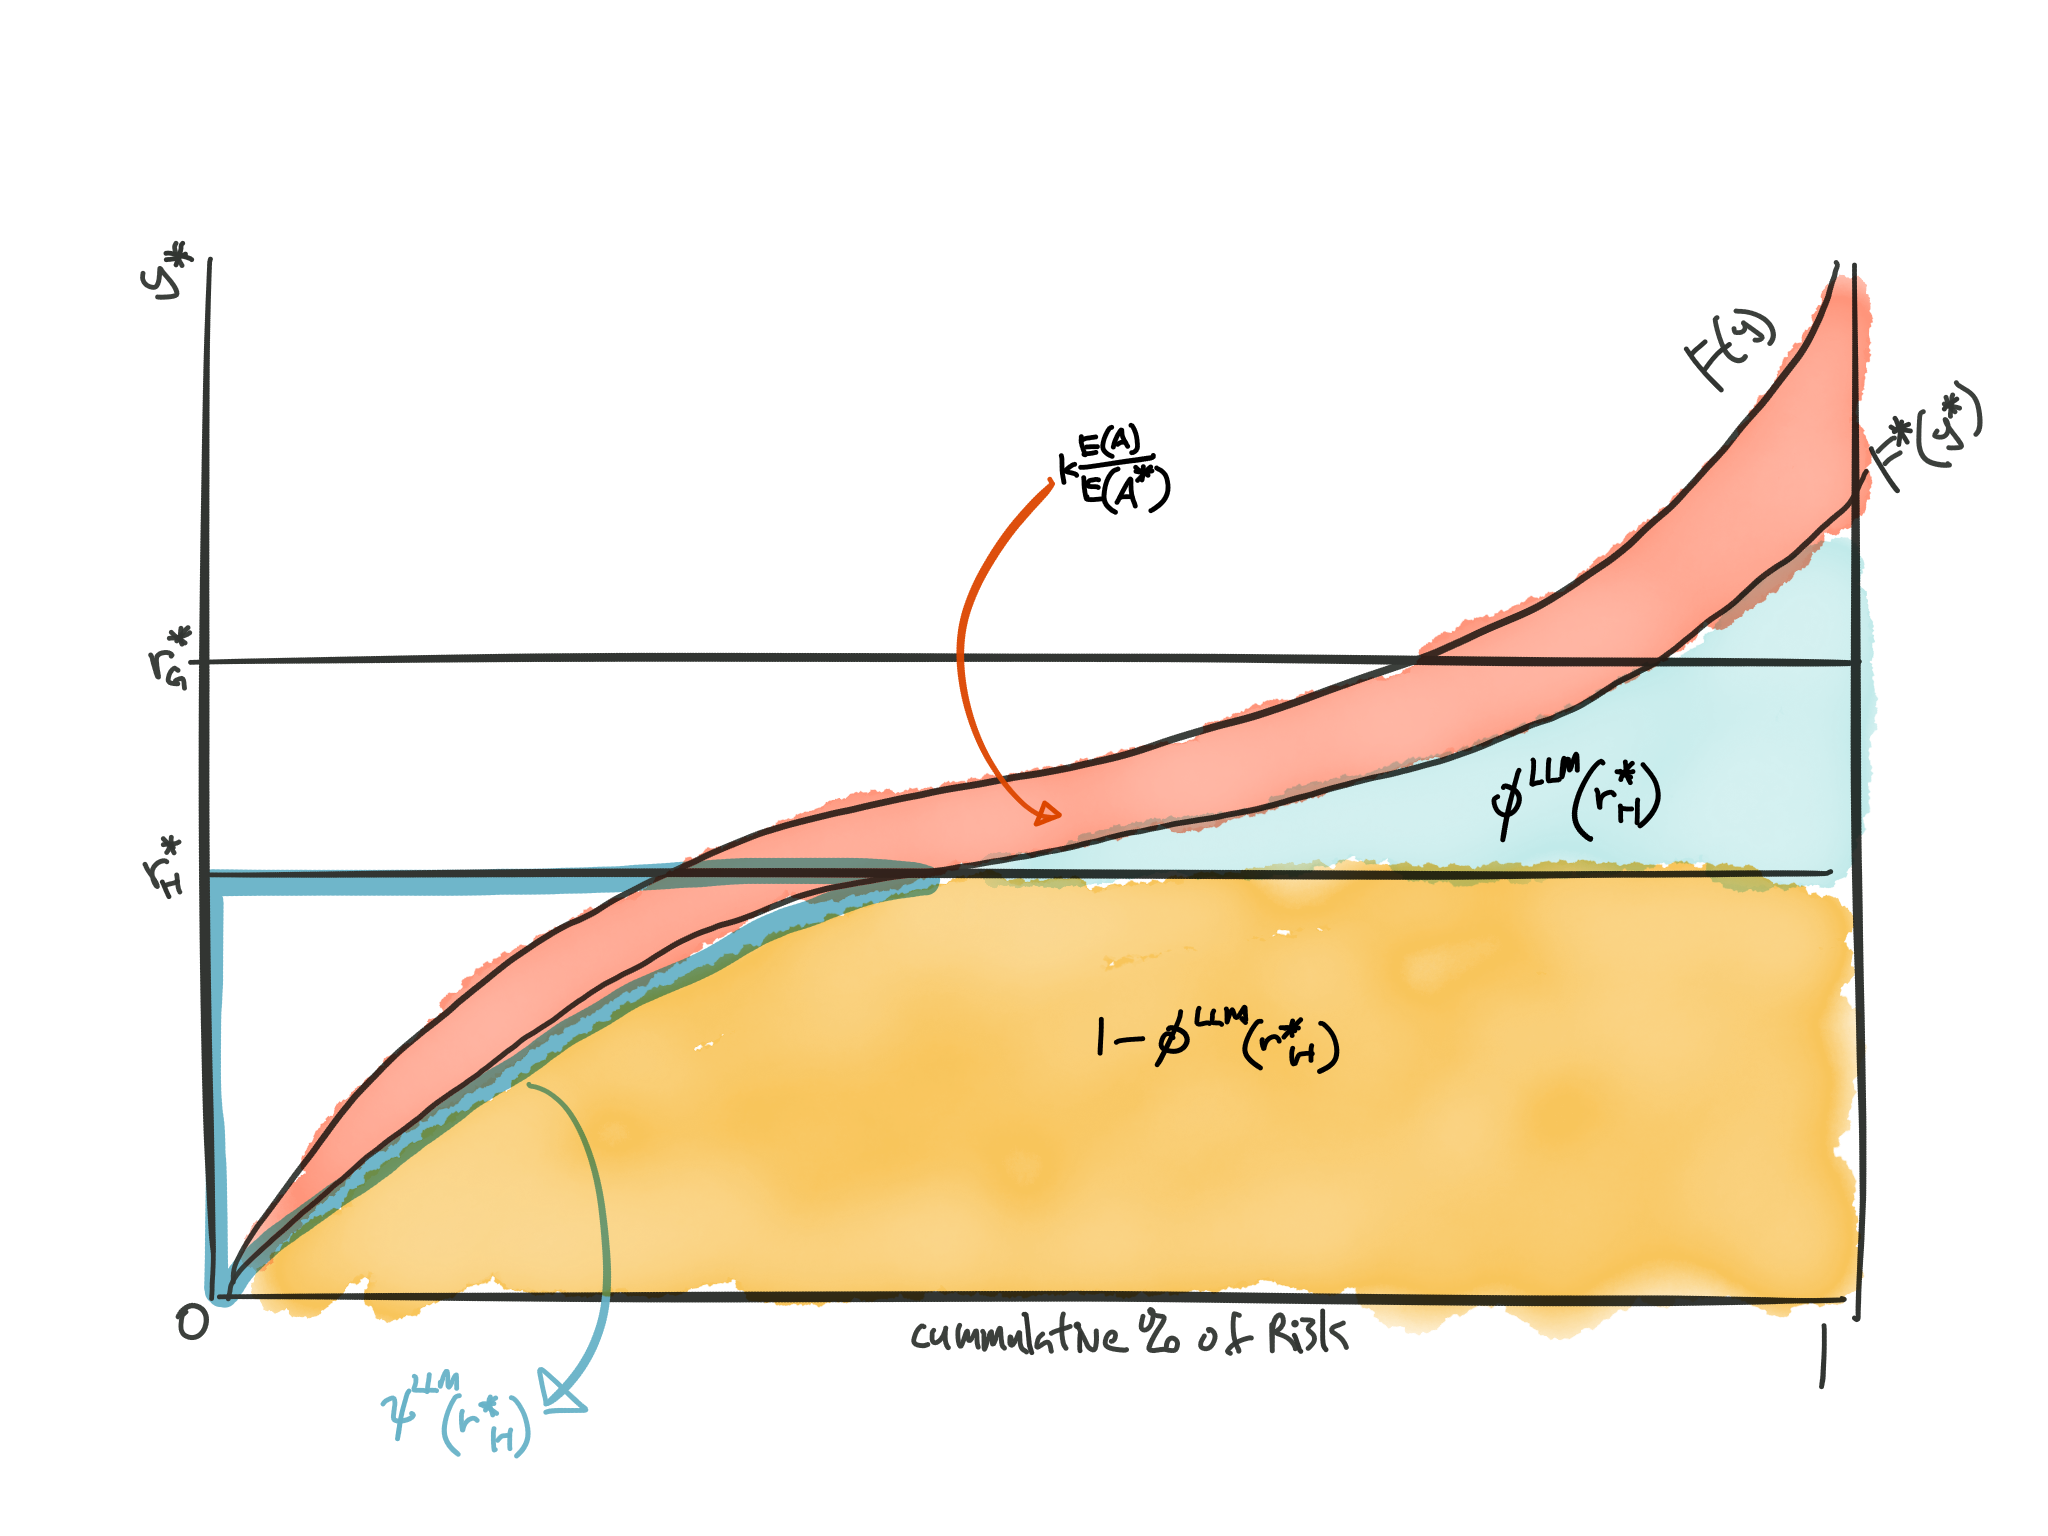 y*
F(y)
F*(y*)
k E(A)/E(A*)
r*G
φ^LLM(r*H)
r*H
1-φ^LLM(r*H)
0
cummulative % of Risk
1
ψ^LLM(r*H)